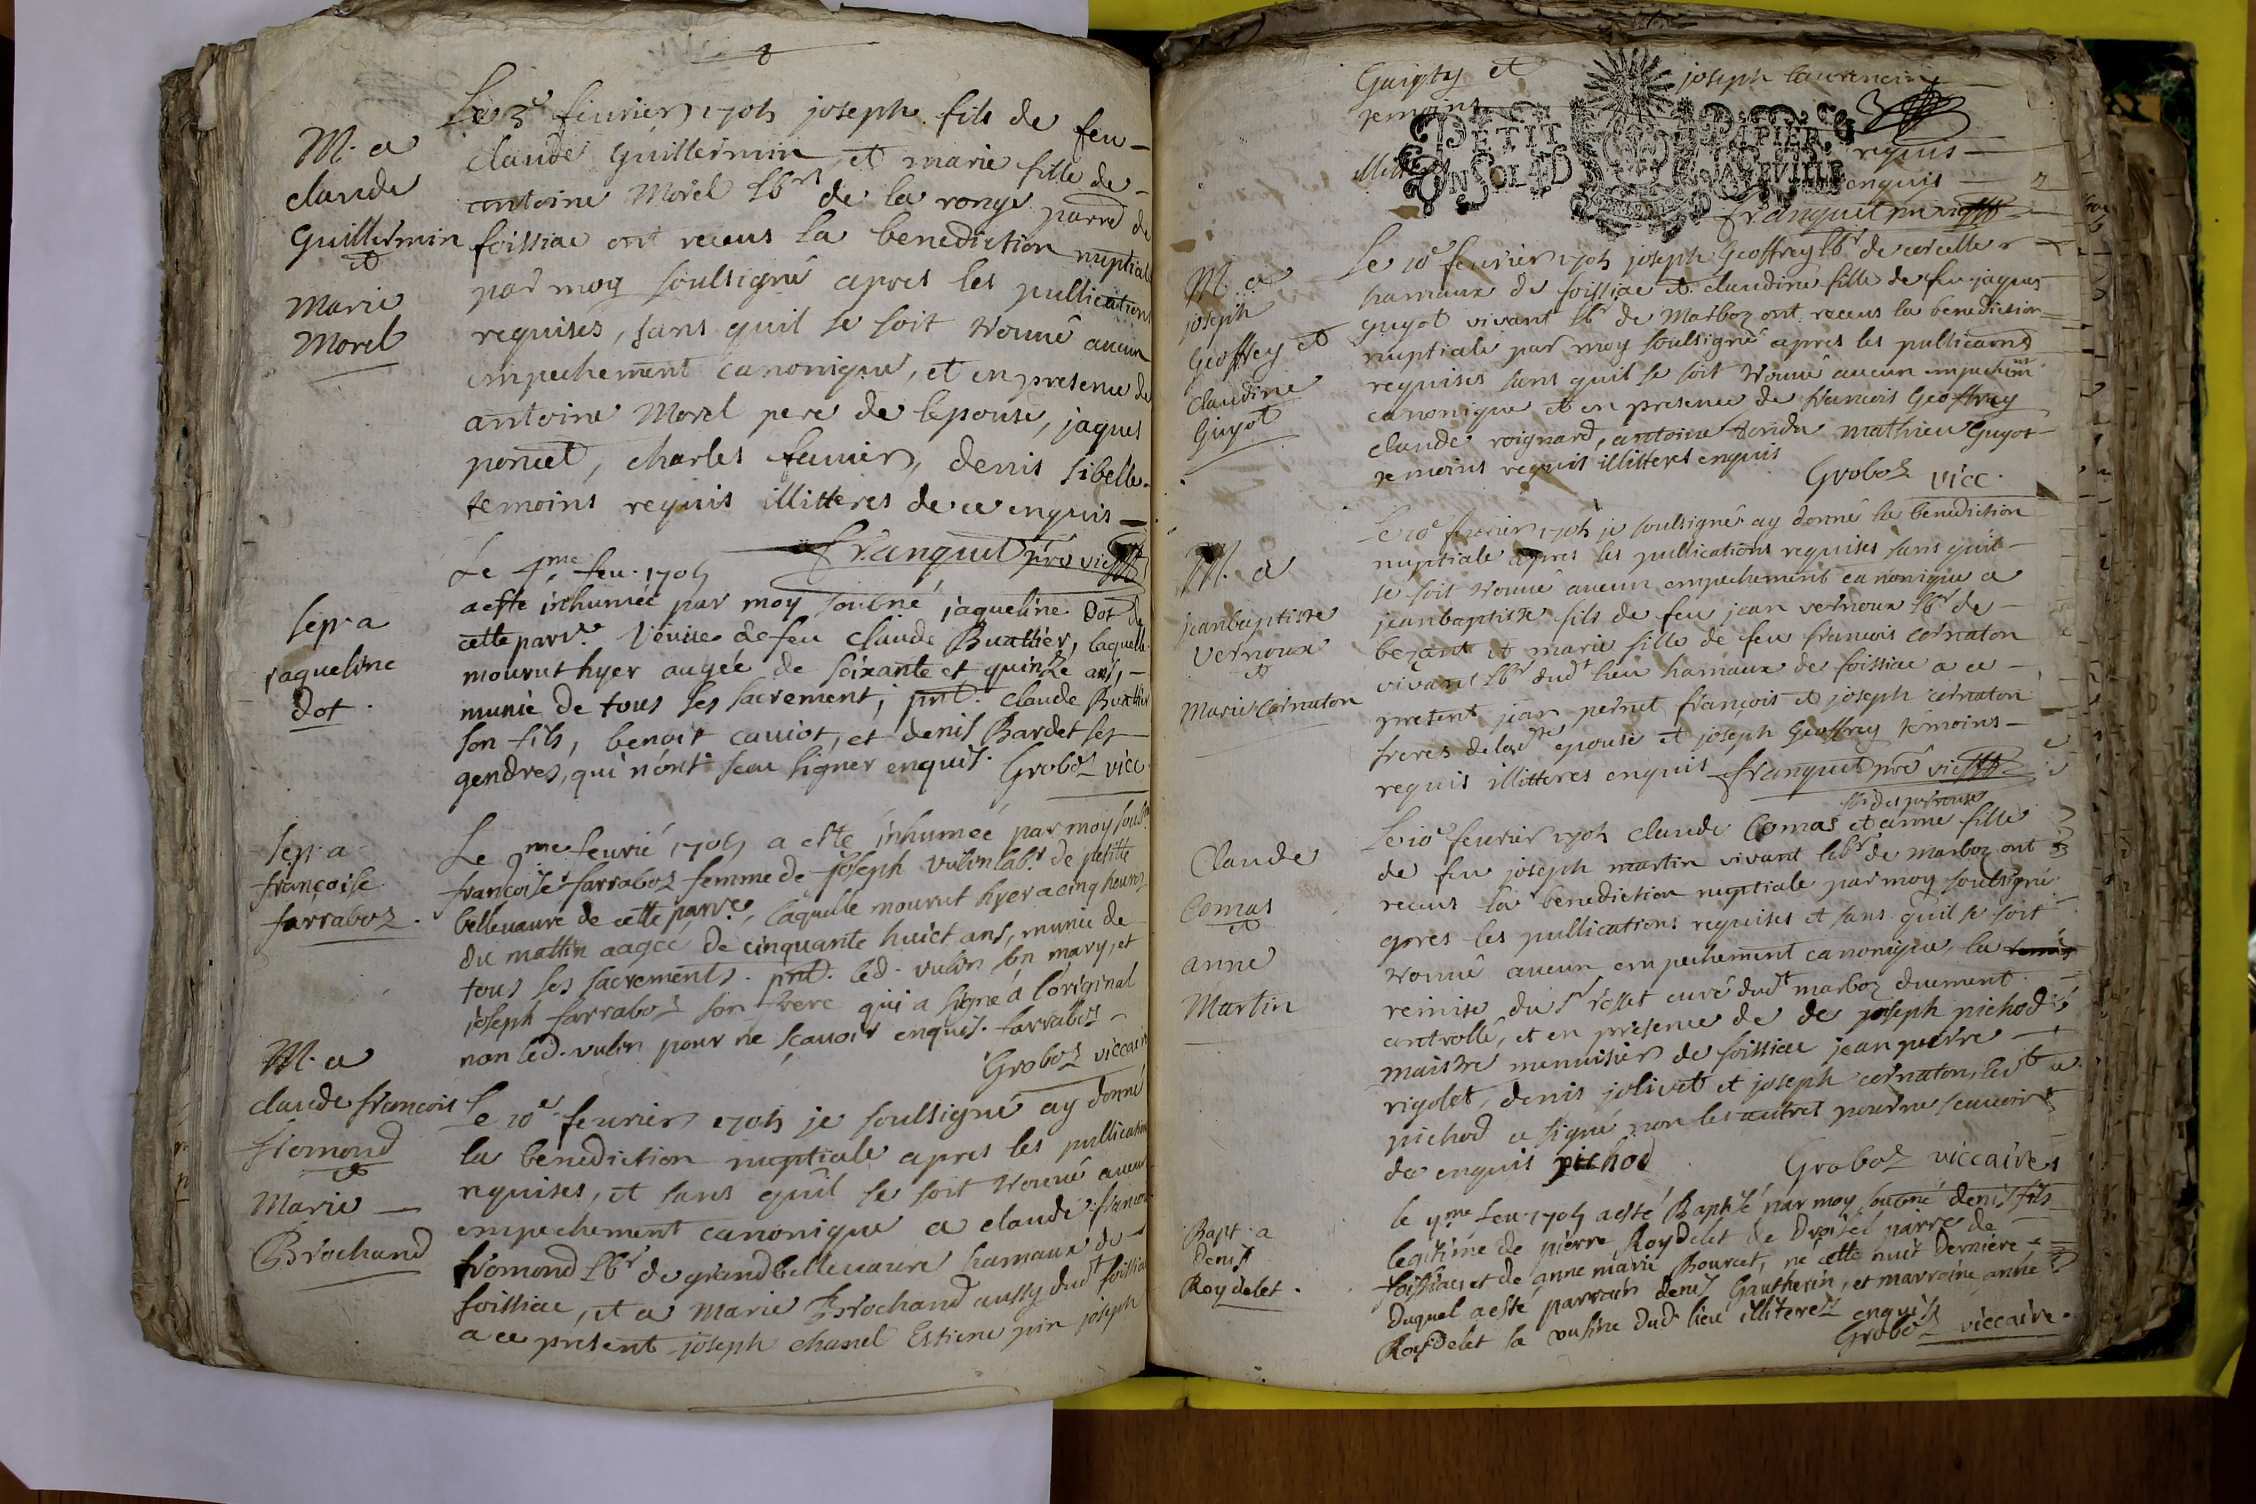 8
M. a
claude
Guillermin
et
Marie
Morel
Le 3e feurier 1705 joseph fils de feu
claude Guillermin et marie fille de
antoine Morel lbr de la ronge parre de
foissiac ont receus la benediction nuptiale
par moy soulsigné apres les publications
requises, sans quil se soit trouué aucun
empechement canonique, et en presence de
antoine Morel pere de lepouse, jaques
poncet, charles feuuier, denis sibelle
temoins requis illitteres de ce enquis
franquet pre vic
Sep. a
jaqueline
Dot.
Le 4me feu. 1705
a esté inhumeé par moy soubné jaqueline Dot de
cette parre. Veuise de feu Claude Buathier, laquelle
mourut hyer augée de soixante et quinze ans,
munie de tous ses sacrement, pnt. Claude Buathier
son fils, benoit cauiot, et denis Bardet ses
gendres, qui n'ont sceu signer enquis. Groboz vicc.
Sep. a
françoise
farraboz.
Le 9me feurié 1705 a esté inhumeé par moy souls
françoise farraboz femme de joseph vulin lab. de petitte
belleuaure de cette parre, laquelle mourut hyer a cinq heures
du mattin aagée de cinquante huict ans, munie de
tous ses sacrements. pnt. led. vulin son mary, et
joseph farraboz son frere qui a signé á l'original
non led. vulin pour ne sçauoir enquis. farraboz
Groboz viccaire
M. a
claude francois
fromond
et
Marie
Brochand
Le 10e feurier 1705 je soulsigné ay donné
la benediction nuptiale apres les publications
requises, et sans quil se soit trouué aucun
empechement canonique a claude francois
fromond lbr de grand belleuaure hamaux de
foissiac, et a Marie Brochand aussy dudt foissiac
a ce present joseph chanel Estiene pin joseph
Guigty et joseph laurencin
temoins
requis
illitteres enquis
PETIT PAPIER
UN SOL 4 D LA FEVILLE
franquet pre vic
M. a
joseph
Geoffrey et
Claudine
Guyot
Le 10e feurier 1705 joseph Geoffrey lbr de corcelle
hamaux de foissiac et claudine fille de feu jaques
guyot vivant lbr de Marboz ont receus la benediction
nuptiale par moy soulsigné apres les publicaons
requises sans quil se soit trouué aucun empechemt
canonique et en presence de francois Geoffrey
claude roignard, antoine tondu mathieu Guyot
temoins requis illitteres enquis
Groboz vicc.
M. a
jeanbaptiste
Vernoux
et
Marie Cornaton
Le 10e feurier 1705 je soulsigné ay donné la benediction
nuptiale apres les publications requises sans quil
se soit trouué aucun empechement canonique a
jeanbaptiste fils de feu jean vernoux lbr de
bezant et marie fille de feu francois cornaton
vivant lbr dudt lieu hamaux de foissiac a ce
present jean pernet françois et joseph cornaton
freres de ladte epouse et joseph Geoffrey temoins
requis illitteres enquis franquet pre vic
Claude
Comas
et
anne
Martin
Le 10e feurier 1705 claude Comas et anne fille
de feu joseph martin vivant lbr de marboz ont
receus la benediction nuptiale par moy soulsigné
apres les publications requises et sans quil se soit
trouué aucun empechement canonique, la
remise du sr rosset curé dudt marboz duement
controllé, et en presence de de joseph pichod
maistre menuisier de foissiac jean pierre
rigolet, denis joliuet et joseph cornaton, ledt
pichod a signé non les autres pour ne scauoir
de enquis pichod Groboz viccaire
Bapt. a
Denis
Roydelet.
le 9me feu. 1705 a esté Baptisé par moy soubné denis fils
legitime de pierre Roydelet de Droisel parre de
foissiac et de anne marie Bourcet, né cette nuit derniere
Duquel a esté parrain denis Gautherin, et marraine anne
Roydelet sa cusine dud. lieu illiterez enquis
Groboz viccaire.